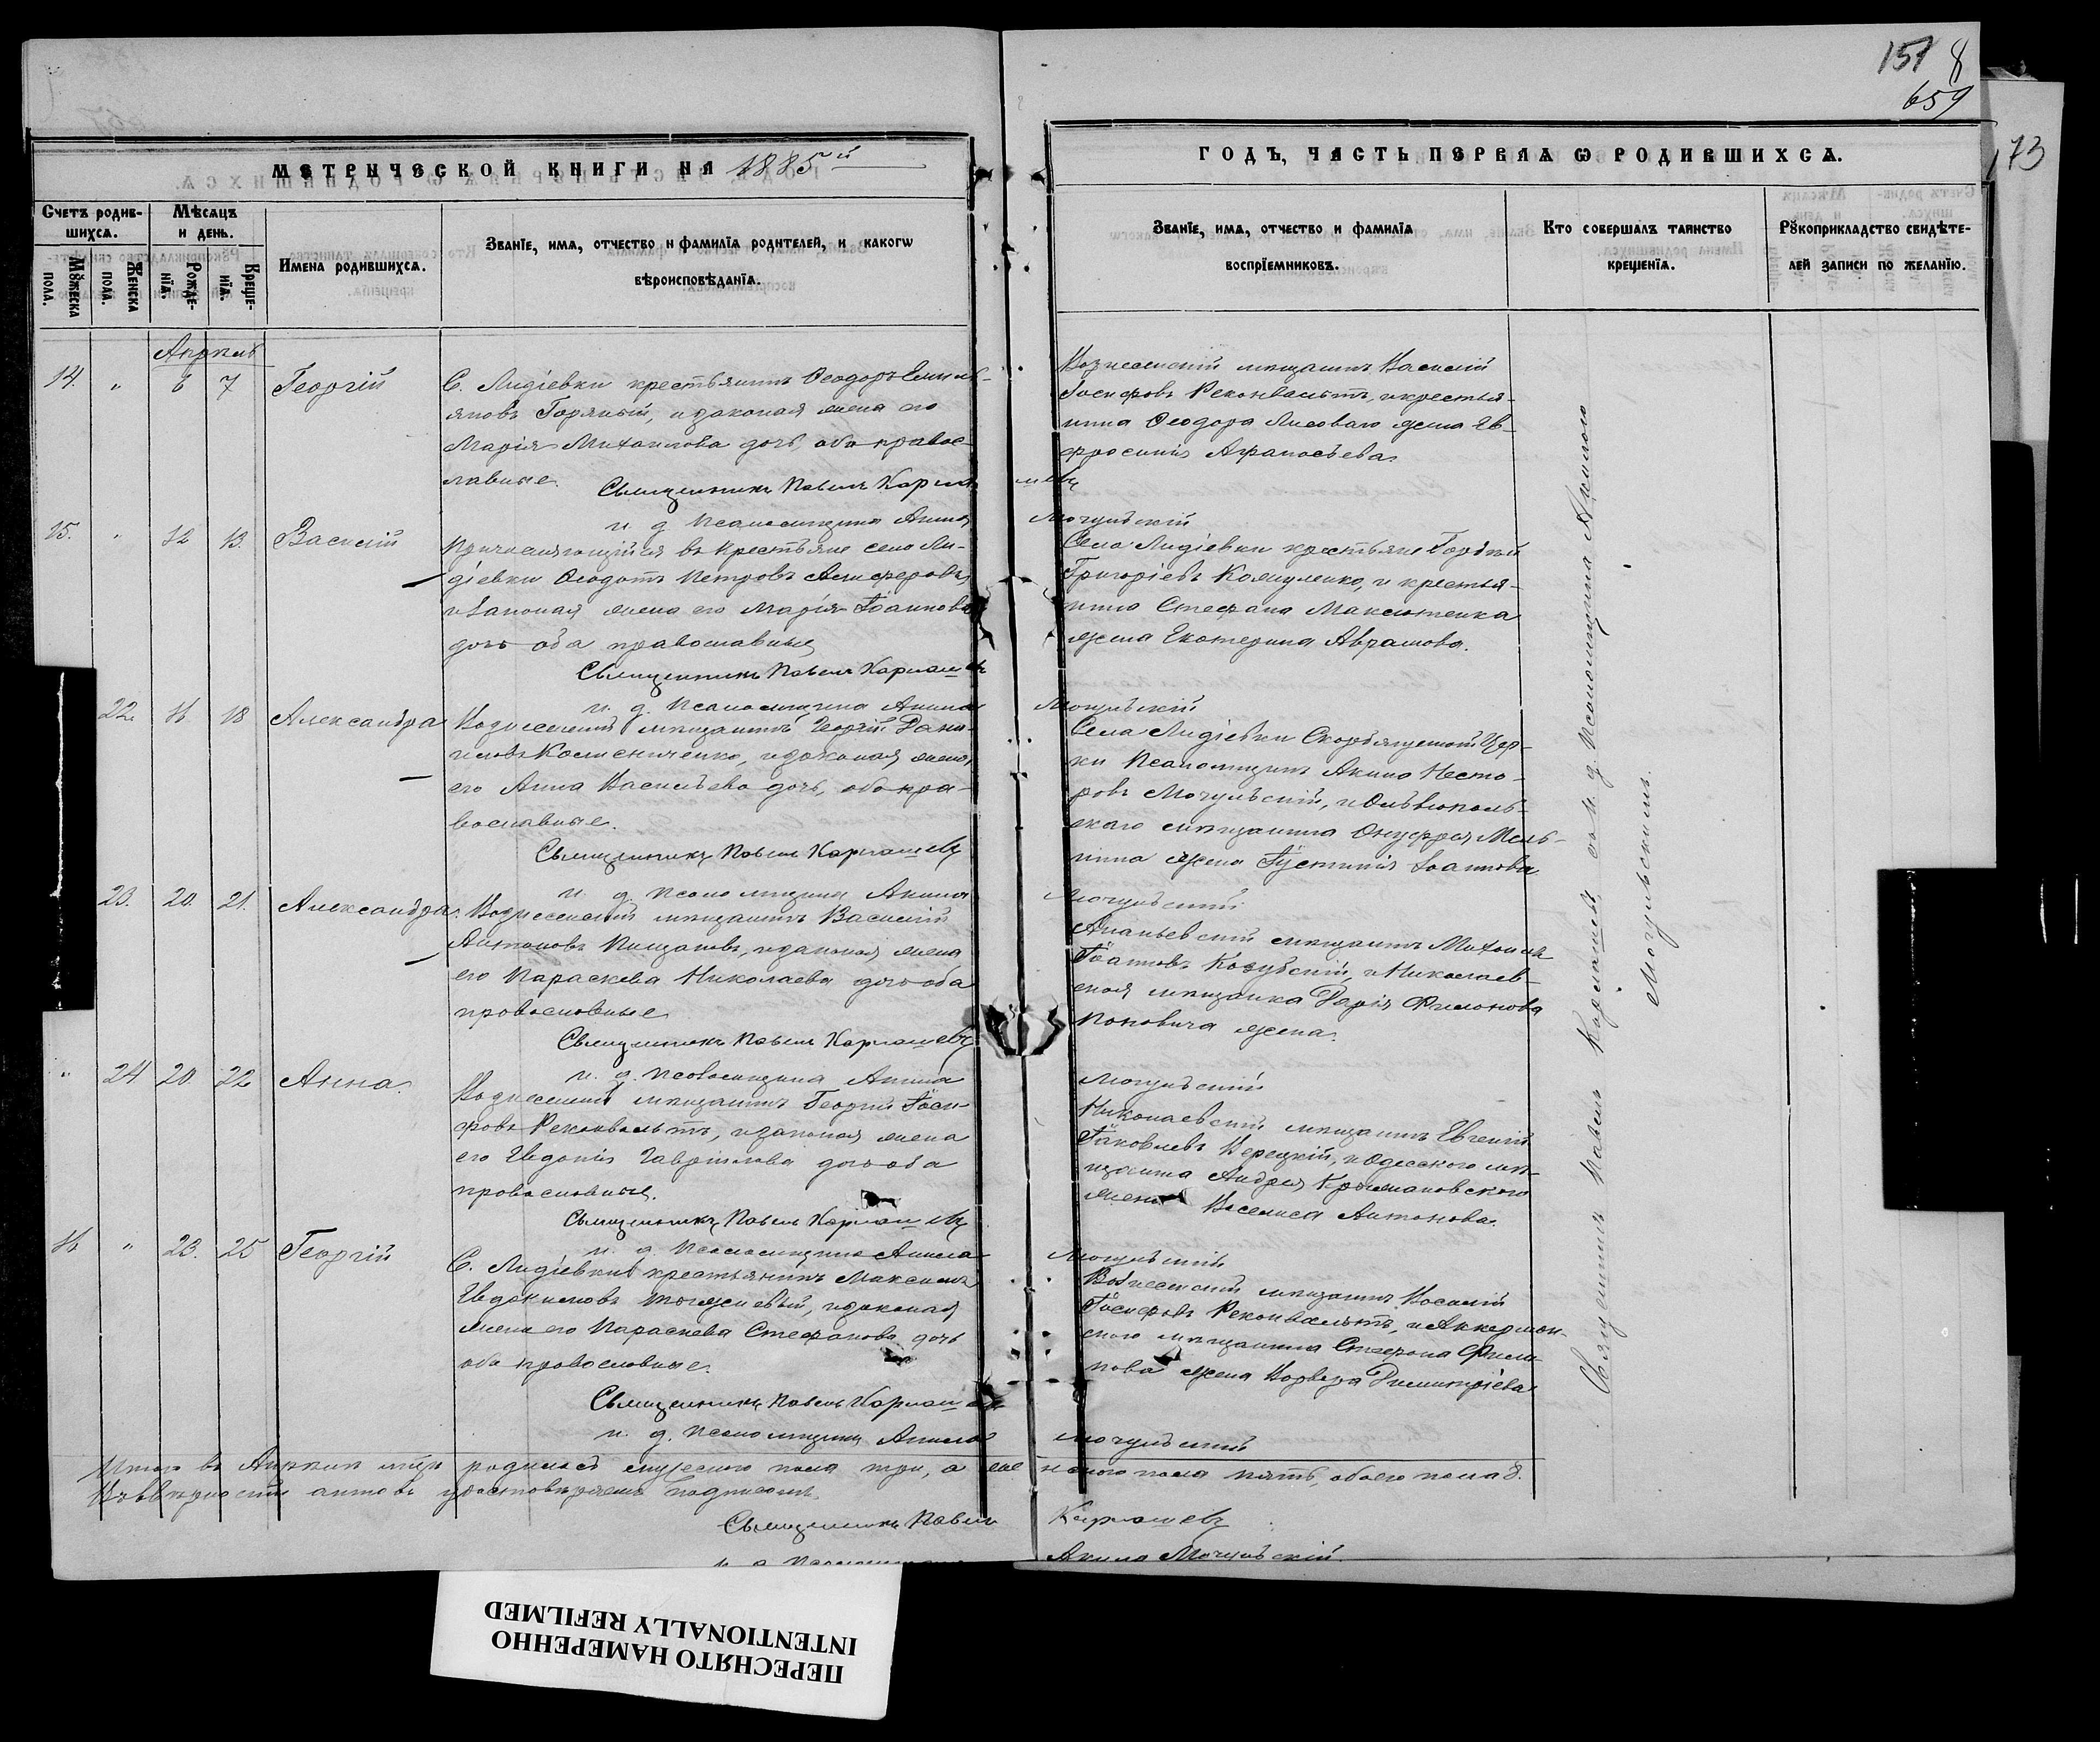 151 8
659
173
МЕТРИЧЕСКОЙ КНИГИ НА 1885й
ГОДЪ, ЧАСТЬ ПЕРВАЯ Ѡ РОДИВШИХСѦ.
Счетъ родив-
шихсѧ.
Мѣсѧцъ
и день.
Мꙋжеска
пола.
Женска
пола.
Рожде-
нїѧ.
Креще-
нїѧ.
Имена родившихсѧ.
Званїе, имѧ, отчество и фамилїѧ родителей, и какогѡ
вѣроисповѣданїѧ.
Званїе, имѧ, отчество и фамилїѧ
воспрїемниковъ.
Кто совершалъ таинство
крещенїѧ.
Рꙋкоприкладство свидѣте-
лей записи по желанїю.
Апрѣль
14. " 6 7 Георгій
С. Лидіевки крестьянинъ Ѳеодоръ Емиль-
яновъ Горяный, и законая жена его
Марія Михаилова дочь, оба правос-
лавные.
Священникъ Павелъ Карташевъ
и. д. Псаломщика Акила Мочульскій
Вознесенскій мѣщанинъ Василій
Іосифовъ Реконвальтъ, и крестья-
нина Ѳеодора Лисоваго жена Ев-
фросинія Афанасьева
15. " 12 13. Василій
Причисляющійся въ крестьяне села Ли-
діевки Ѳеодотъ Петровъ Алисферовъ
и законая жена его Марія Іоаннова
дочь оба православные
Священникъ Павелъ Карташевъ
и. д. Псаломщика Акила Мочульскій
Села Лидіевки крестьяне Гордѣй
Григоріевъ Комуленко, и крестья-
нина Стефана Максютенка
жена Екатерина Аврамова.
22. 16 18 Александра
Вознесенскій мѣщанинъ Георгій Дани-
иловъ Колисниченко, и законая жена
его Анна Васильева дочь, оба пра-
вославные.
Священникъ Павелъ Карташевъ
и. д. Псаломщика Акила Мочульскій
Села Лидіевки Скорбященской Цер-
кви Псаломщикъ Акила Несто-
ровъ Мочульскій, и Ольвіополь-
скаго мѣщанина Онуфрія Мель-
жена Іустинія Іоаннова
23. 20. 21. Александра.
Вознесенскій мѣщанинъ Василій
Антоновъ Пищановъ, и законая жена
его Параскева Николаева дочь оба
православные
Священникъ Павелъ Карташевъ
и. д. Псаломщика Акила Мочульскій
Ананьевскій мѣщанинъ Михаилъ
Іоанновъ Козубскій, и Николаев-
ская мѣщанка Дарія Филонова
Поповича жена.
" 24 20 22 Анна.
Вознесенскій мѣщанинъ Георгій Іоси-
фовъ Реконвальтъ, и законая жена
его Евдокія Гавріилова дочь оба
православные.
Священникъ Павелъ Карташевъ
и. д. Псаломщика Акила Мочульскій
Николаевскій мѣщанинъ Евгеній
Іаковлевъ Верецкій, и Одесского мѣ-
щанина Андрея Крыжановского
жена Василиса Антонова.
16 " 23. 25 Георгій
С. Лидіевки крестьянинъ Максимъ
Евдокимовъ, и законая
жена его Параскева Стефанова дочь
оба православные.
Священникъ Павелъ Карташевъ
и. д. Псаломщика Акила Мочульскій
Вознесенскій мѣщанинъ Василій
Іосифовъ Реконвальтъ, и Аккерман-
ского мѣщанина Стефана Филип-
пова жена Варвара Димитріева
Священникъ Павелъ Карташевъ, съ и. д. Псаломщика Акилою
Мочульскимъ.
Итого въ Апрѣлѣ м-цѣ родилось мужеского пола три, а женского пола пять, обоего пола 8.
Въ вѣрности актовъ удостовѣряемъ подписомъ.
Священникъ Павелъ Карташевъ
и. д. Псаломщика Акила Мочульскій.
ПЕРЕСНЯТО НАМЕРЕННО
INTENTIONALLY REFILMED